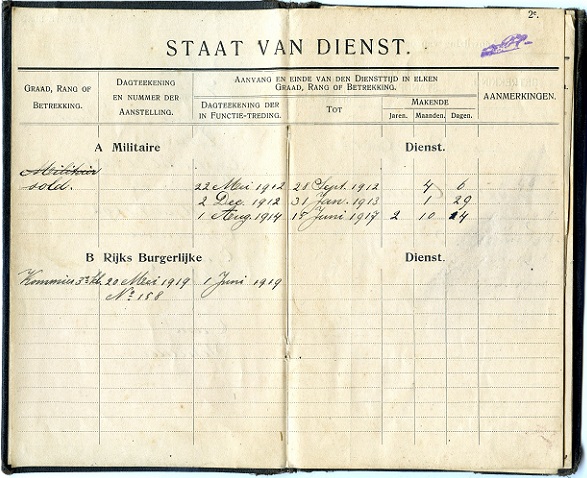 2e.
STAAT VAN DIENST.
GRAAD, RANG OF BETREKKING.
DAGTEEKENING EN NUMMER DER AANSTELLING.
AANVANG EN EINDE VAN DEN DIENSTTIJD IN ELKEN GRAAD, RANG OF BETREKKING.
DAGTEEKENING DER IN FUNCTIE-TREDING.
TOT
MAKENDE
Jaren. Maanden. Dagen.
AANMERKINGEN.
A Militaire Dienst.
Milicien
sold.
22 Mei 1912 28 Sept. 1912 4 6
2 Dec. 1912 31 Jan. 1913 1 29
1 Aug. 1914 15 Juni 1917 2 10 14
B Rijks Burgerlijke Dienst.
Kommies 3e kl. 20 Mei 1919 1 Juni 1919
No 158